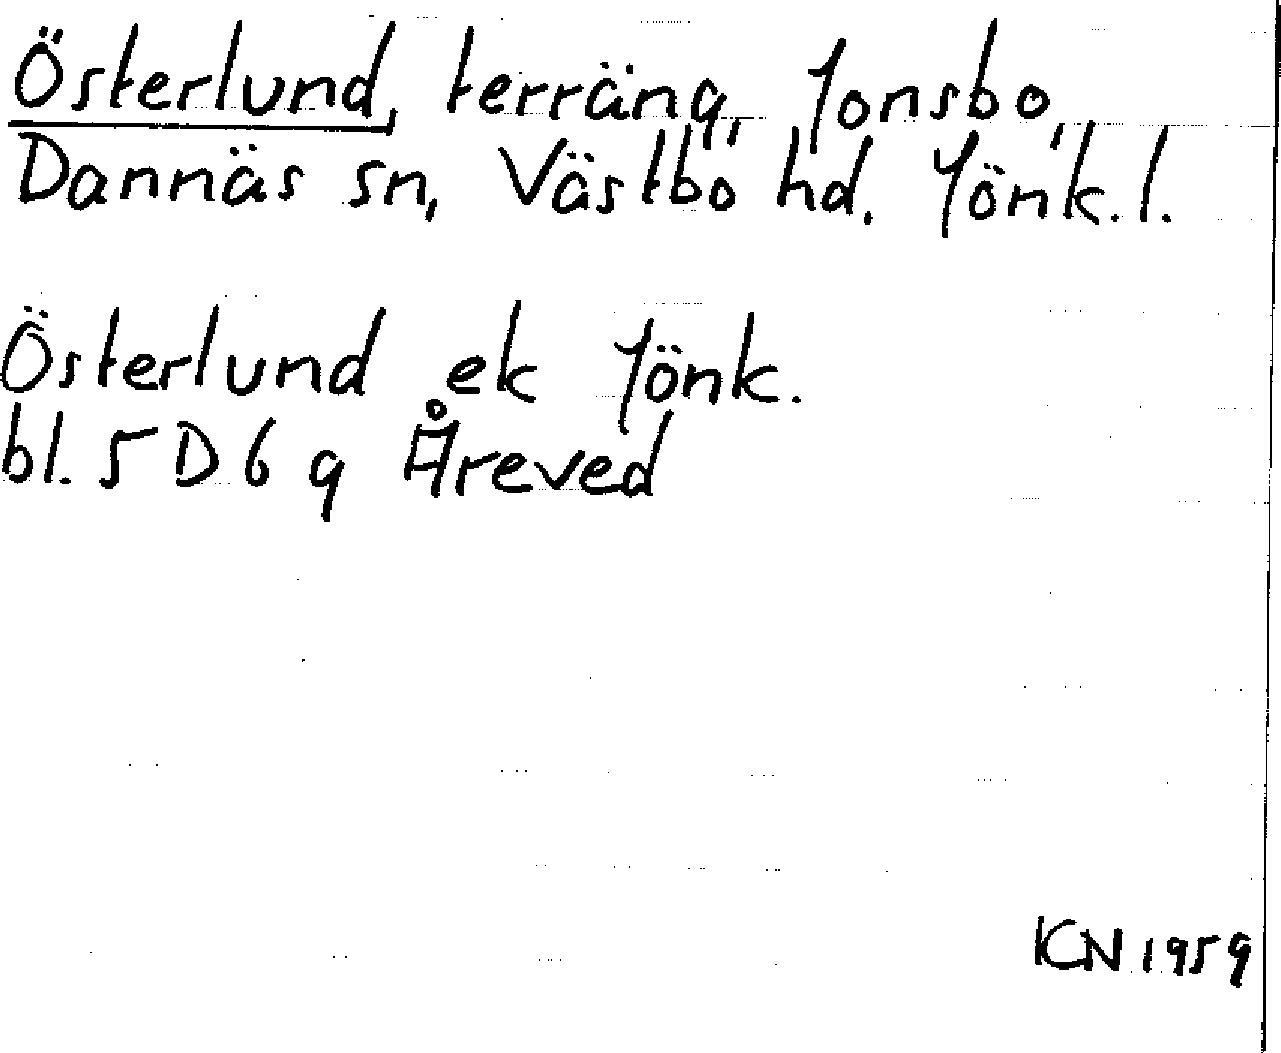 Österlund, terräng, Jonsbo,
Dannäs sn, Västbo hd. Jönk. l.
Österlund ek Jönk.
bl. 5 D 6 g Åreved
KN 1959